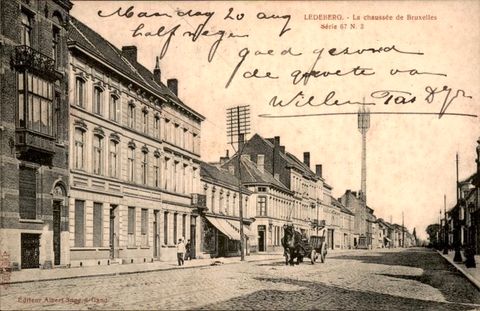 Maandag 20 aug
half negen
LEDEBERG. - La chaussée de Bruxelles
Série 67 N. 3
goed gezond
de groete van
Willem
Editeur Albert Sugg à Gand